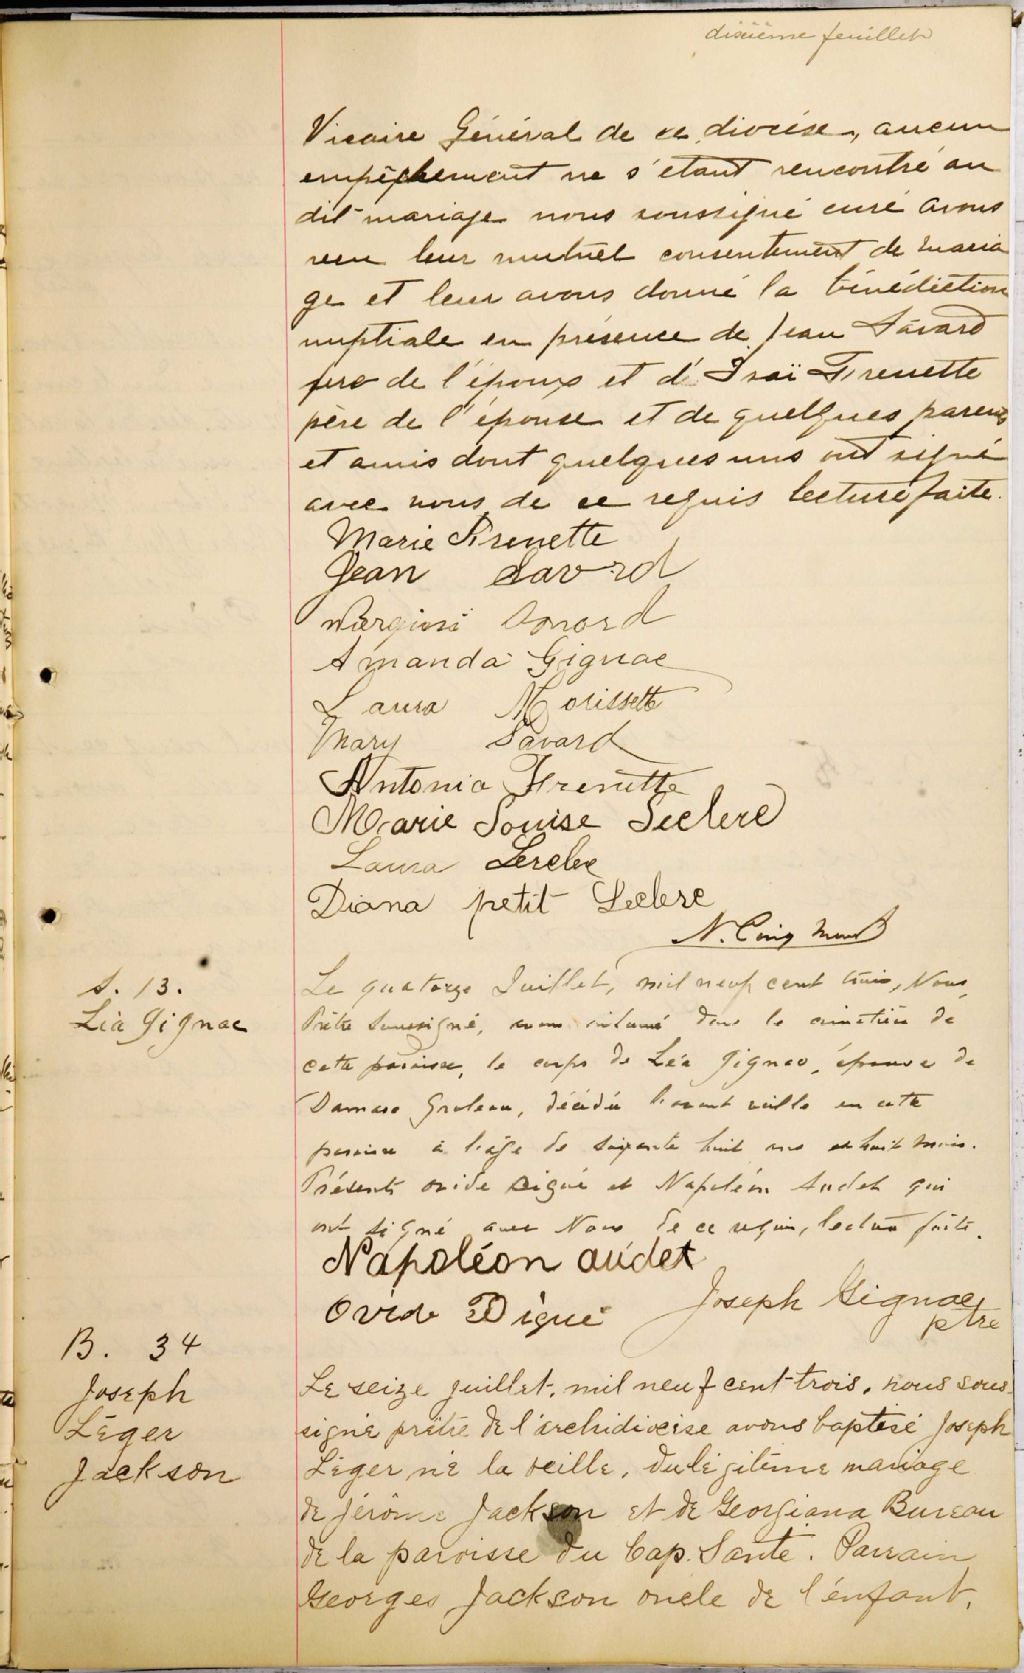 dixième feuillet
Vicaire Général de ce diocèse, aucun
empêchement ne s'étant rencontré au
dit mariage nous soussigné curé avons
reçu leur mutuel consentement de maria
ge et leur avons donné la bénédiction
nuptiale en présence de Jean Savard
père de l'époux et d'Isaï Frenette
père de l'épouse et de quelques parents
et amis dont quelques uns ont signé
avec nous, de ce requis lecture faite.
Marie Frenette
Jean Savard
Amanda Gignac
Laura Morissette
Mary Savard
Antonia Frenette
Marie Louise Leclerc
Laura Leclerc
Diana petit Leclerc
N. Cinq Mars
S. 13.
Léa Gignac
Le quatorze Juillet, mil neuf cent trois, Nous,
Prêtre Soussigné, avons inhumé dans le cimetière de
cette paroisse, le corps de Léa Gignac, épouse de
Damase Groleau, décédée l'avant veille en cette
paroisse à l'âge de soixante huit ans et huit mois.
Présents Ovide Digué et Napoléon Audet qui
ont signé avec Nous de ce requis, lecture faite.
Napoléon audet
Ovide Digué
Joseph Gignac
ptre
B. 34
Joseph
Léger
Jackson
Le seize juillet, mil neuf cent trois, nous sous-
signé prêtre de l'archidiocèse avons baptisé Joseph
Léger né la veille, du légitime mariage
de Jérôme Jackson et de Georgiana Bureau
de la paroisse du Cap. Santé. Parrain
Georges Jackson oncle de l'enfant,